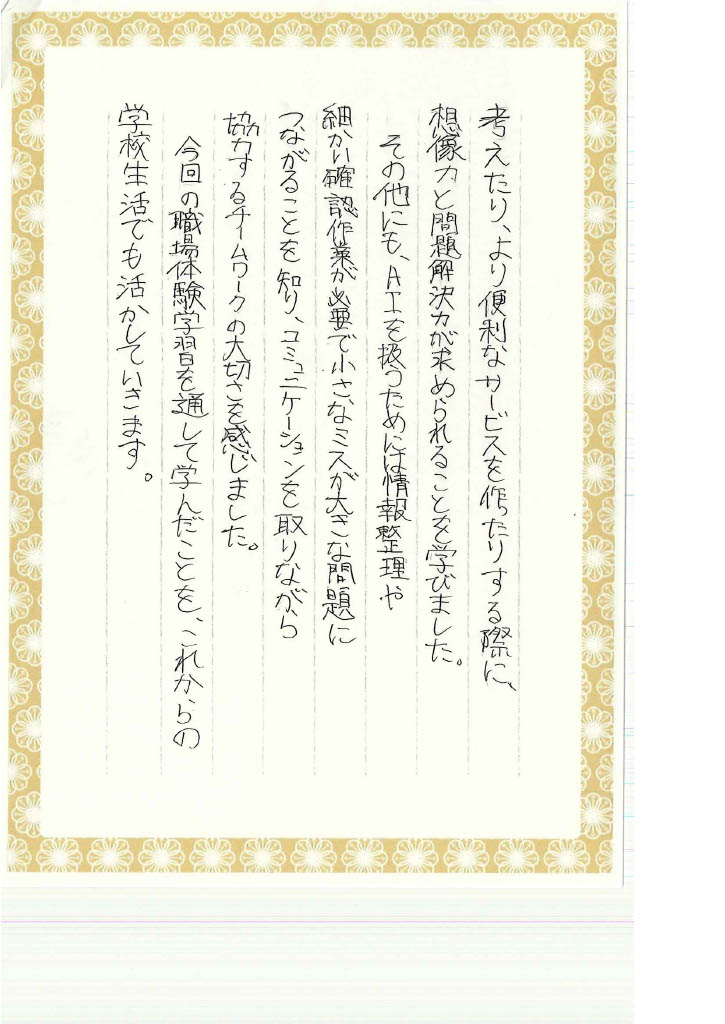 考えたり、より便利なサービスを作たりする際に、
想像力と問題解決力が求められることを学びました。
その他にも、AIを扱うためには情報整理や
細かい確認作業が必要で小さなミスが大きな問題に
つながることを知り、コミュニケーションを取りながら
協力するチームワークの大切さを感じました。
今回の職場体験学習を通して学んだことを、これからの
学校生活でも活かしていきます。